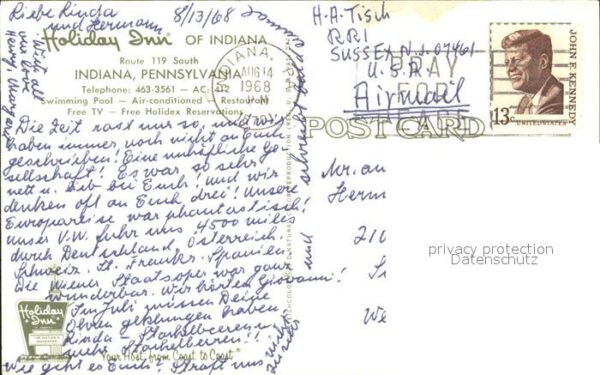 Liebe Linda
und Hermann
8/13/68
Holiday Inn OF INDIANA
Route 119 South
INDIANA, PENNSYLVANIA
Telephone: 463-3561 - AC: 412
Swimming Pool - Air-conditioned - Restaurant
Free TV - Free Holidex Reservations
Die Zeit rast nur so, und wir
haben immer noch nicht an Euch
geschrieben! Eine unhöfliche Ge-
sellschaft! Es war so sehr
nett u. lieb bei Euch! und wir
denken oft an Euch drei! Unsere
Europareise war phantastisch!
unser V.W. fuhr uns 4500 miles
durch Deutschland, Österreich,
Schweiz, It. Frankr. Spanien und
Die Wiener Staatsoper war ganz
wunderbar. Wir hörten Giovanni!
Im Juli müssen Deine
Ohren geklungen haben,
Linda - Stachelbeeren u.
mehr Stachelbeeren!!
Wie geht es Euch? Straft uns nicht
zu sehr und schreibt
Mit all
our love
Henry,
Holiday Inn
Your Host from Coast to Coast
INDIANA,
AUG 14
PM
1968
PRAY
FOR
H.A. Tisch
RR1
SUSSEX N.J. 07461
U.S.A.
Airmail
POST CARD
JOHN F. KENNEDY
13c
UNITED STATES
Mr. an
Herm
210
We
privacy protection
Datenschutz